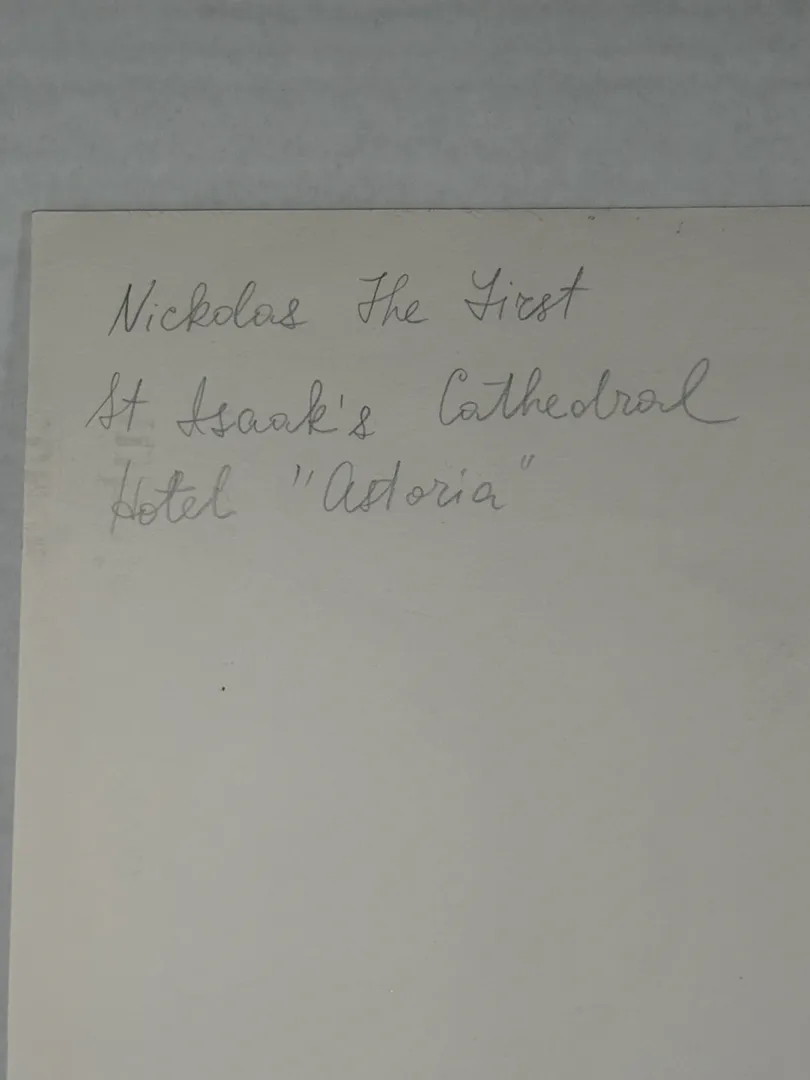 Nickolas The First
St Isaak's Cathedral
Hotel "Astoria"